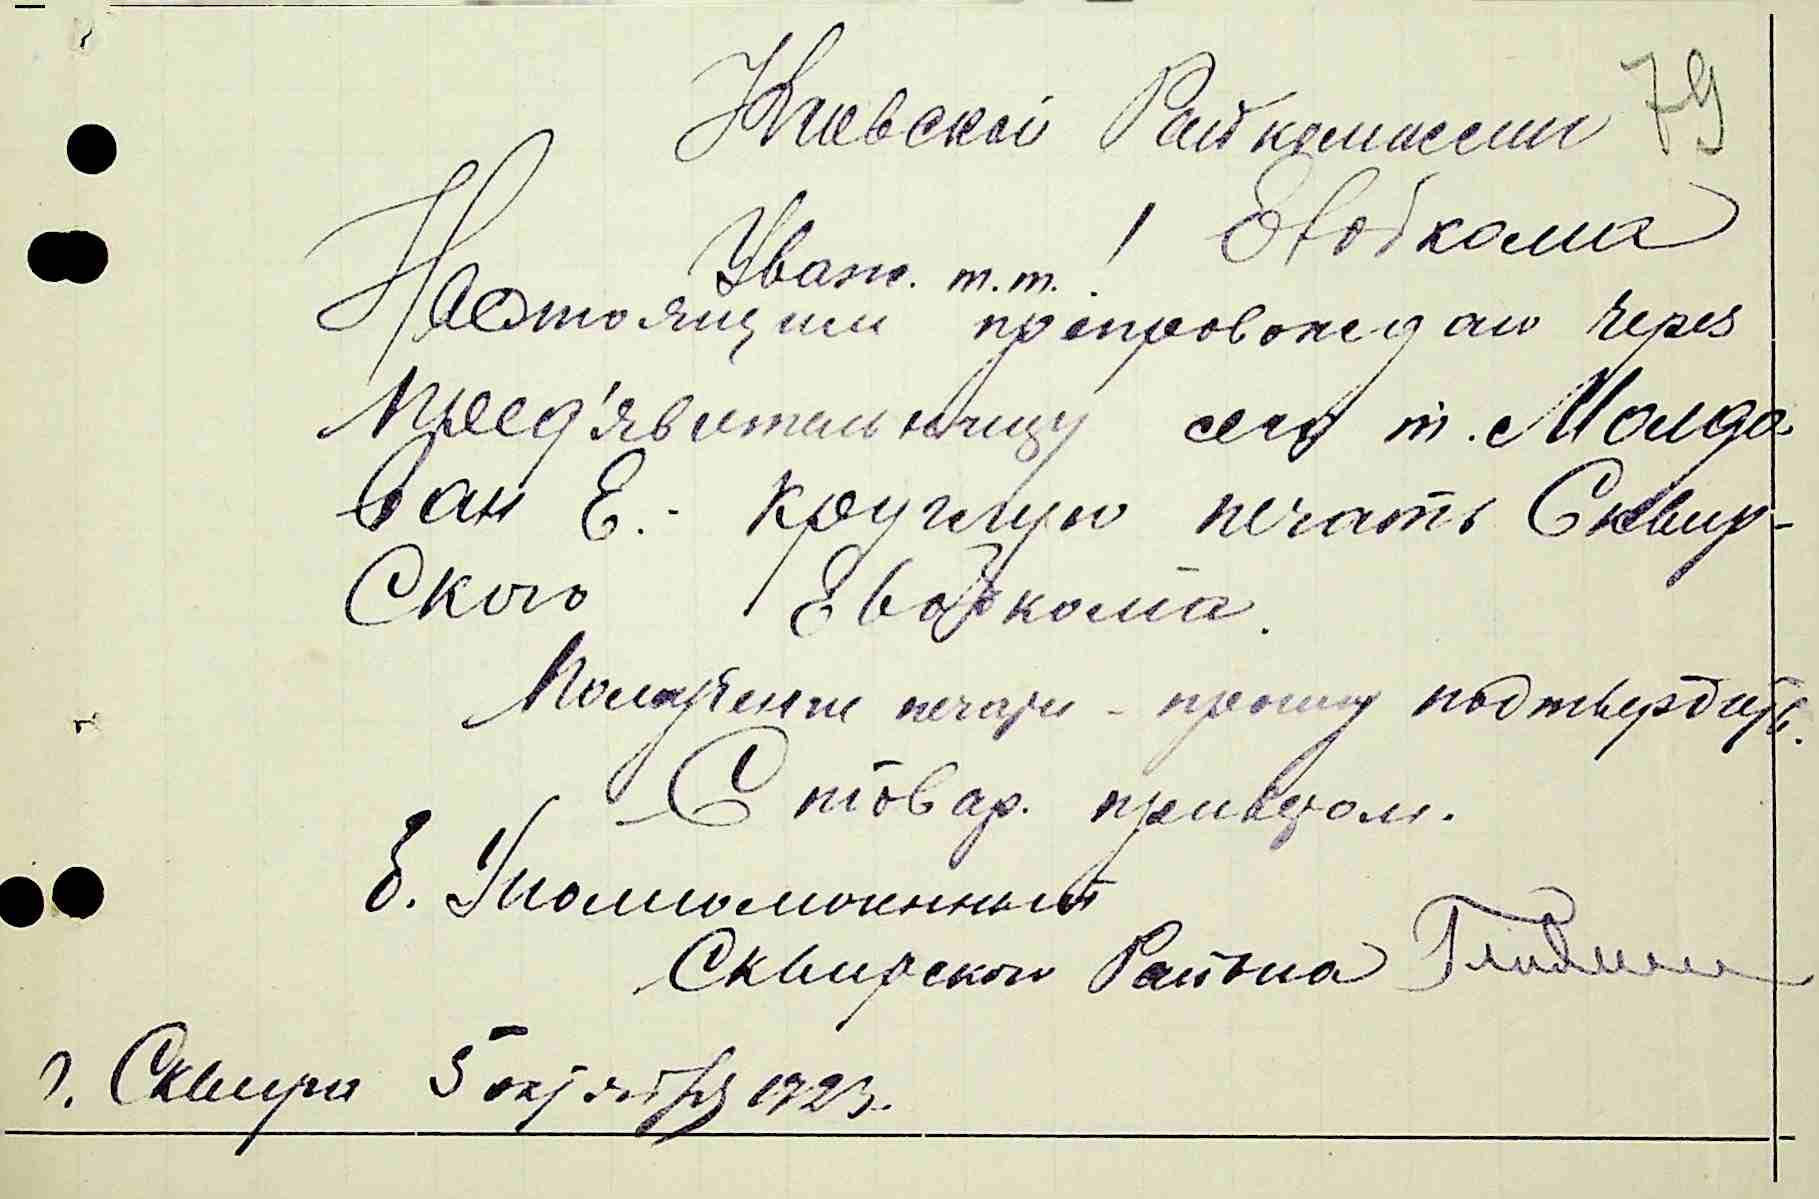 Киевской Райкомиссии 79
Евобкома
Уваж. т.т.!
Настоящим препровождаю через
пред'явительницу сего т. Молдо-
ван Е. - круглую печать Сквир-
ского Евобкома.
Получение печати - прошу подтвердить.
С товар. приветом.
б. Уполномоченный
Сквирского Района
г. Сквира 5 октября 1923.